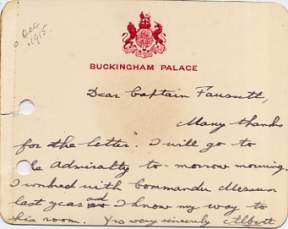 Dec
1915
BUCKINGHAM PALACE
Dear Captain Fausset,
Many thanks
for the letter. I will go to
the Admiralty to morrow morning.
I worked with Commander
last year and I know my way to
his room. Yrs very sincerely Albert